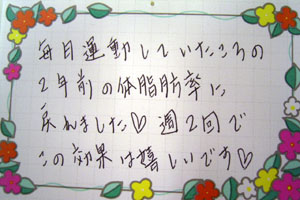 毎日運動していたころの
2年前の体脂肪率に
戻れました♡ 週2回で
この効果は嬉しいです♡